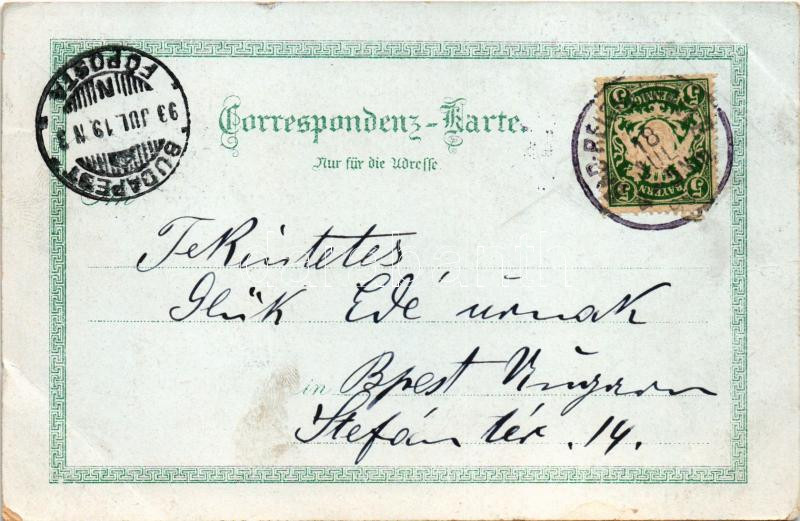 BUDAPEST
FŐPOSTA
93 JUL. 19. N 3
5 PFENNIG 5
5 BAYERN 5
18
JUL
Correspondenz-Karte.
Nur für die Adresse
Tekintetes
Glük Ede úrnak
in Bpest Ungarn
Stefánia tér. 14.